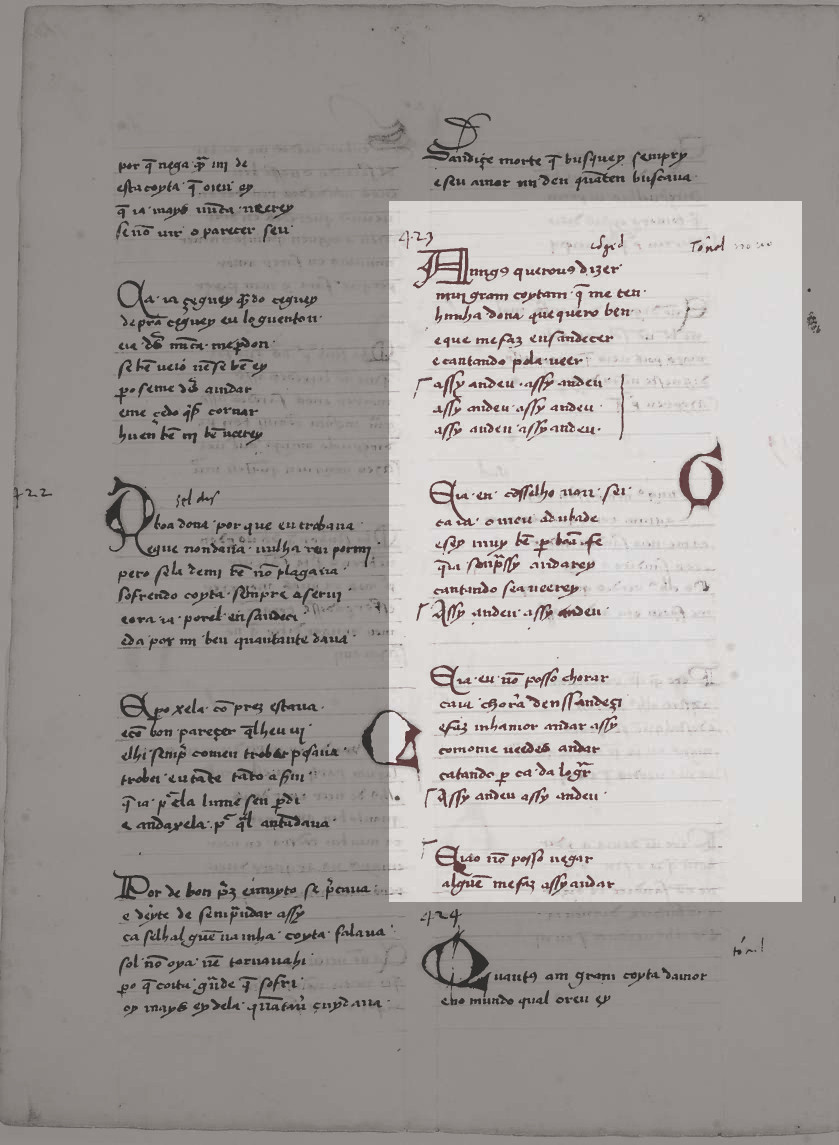 por q̄ nega q̄ mi de
esta coyta q̄ oieu ey
q̄ ia mays nūca veerey
se nō uir o parecer seu
Ca ia çeguey q̄do çeguey
de pran çeguey eu loguentōn
eia d's nūca me pdon
se bē ueio nē se bē ey
po se me d's aiudar
eme çedo q'ser cornar
hu eu bē mi bē ueerey
422
A boa dona por que eu trobaua
eque non daua nulha ren por mj
pero sela de mi bē nō plagaua
sofrendo coyta sempre a serui
eora ia por el ensandeci
e da por mi ben quantante daua
E po xela cō prez estaua
ecō bon pareçer q̄ lheu ui
elhi semp' comeu trobar pesaua
trobei eu tāte tāto a serui
q̄ ia p' ela lume sen pdi
e andaxela p' q̄l antādaua
Por de bon prez e muyto se p'çaua
e deyte de semp'andar assy
ca selhalguē na mha coyta falaua
sol nō oya nē tornaua hi
po q̄ coita g'nde q̄ sofri
oy mays ey dela quātau' cuydaua
Sandiçe morte q̄ busquey sempry
e seu amor mi deu quāten buscaua
423
Tōnel
Amigus querouus dizer
mui gram coytam q̄ me ten
hunha dona que quero ben
e que me faz ensandecer
e catando pola ueer
assy andeu assy andeu
assy andeu assy andeu
assy andeu assy andeu
E ia eu cōsselho non sei
ca ia o meu adubade
e sey muy bē per boā fe
q̄ ia semp'ssy andarey
catando se a ueerey
Assy andeu assy andeu
E ia eu nō posso chorar
ca ia chorā d'ensandeçi
e faz mhamor andar assy
comome ueedes andar
catando p ca da logr̄
Assy andeu assy andeu
E iao nō posso negar
alguē me faz assy andar
424
Quantus am gram coyta damor
eno mundo qual oreu ey